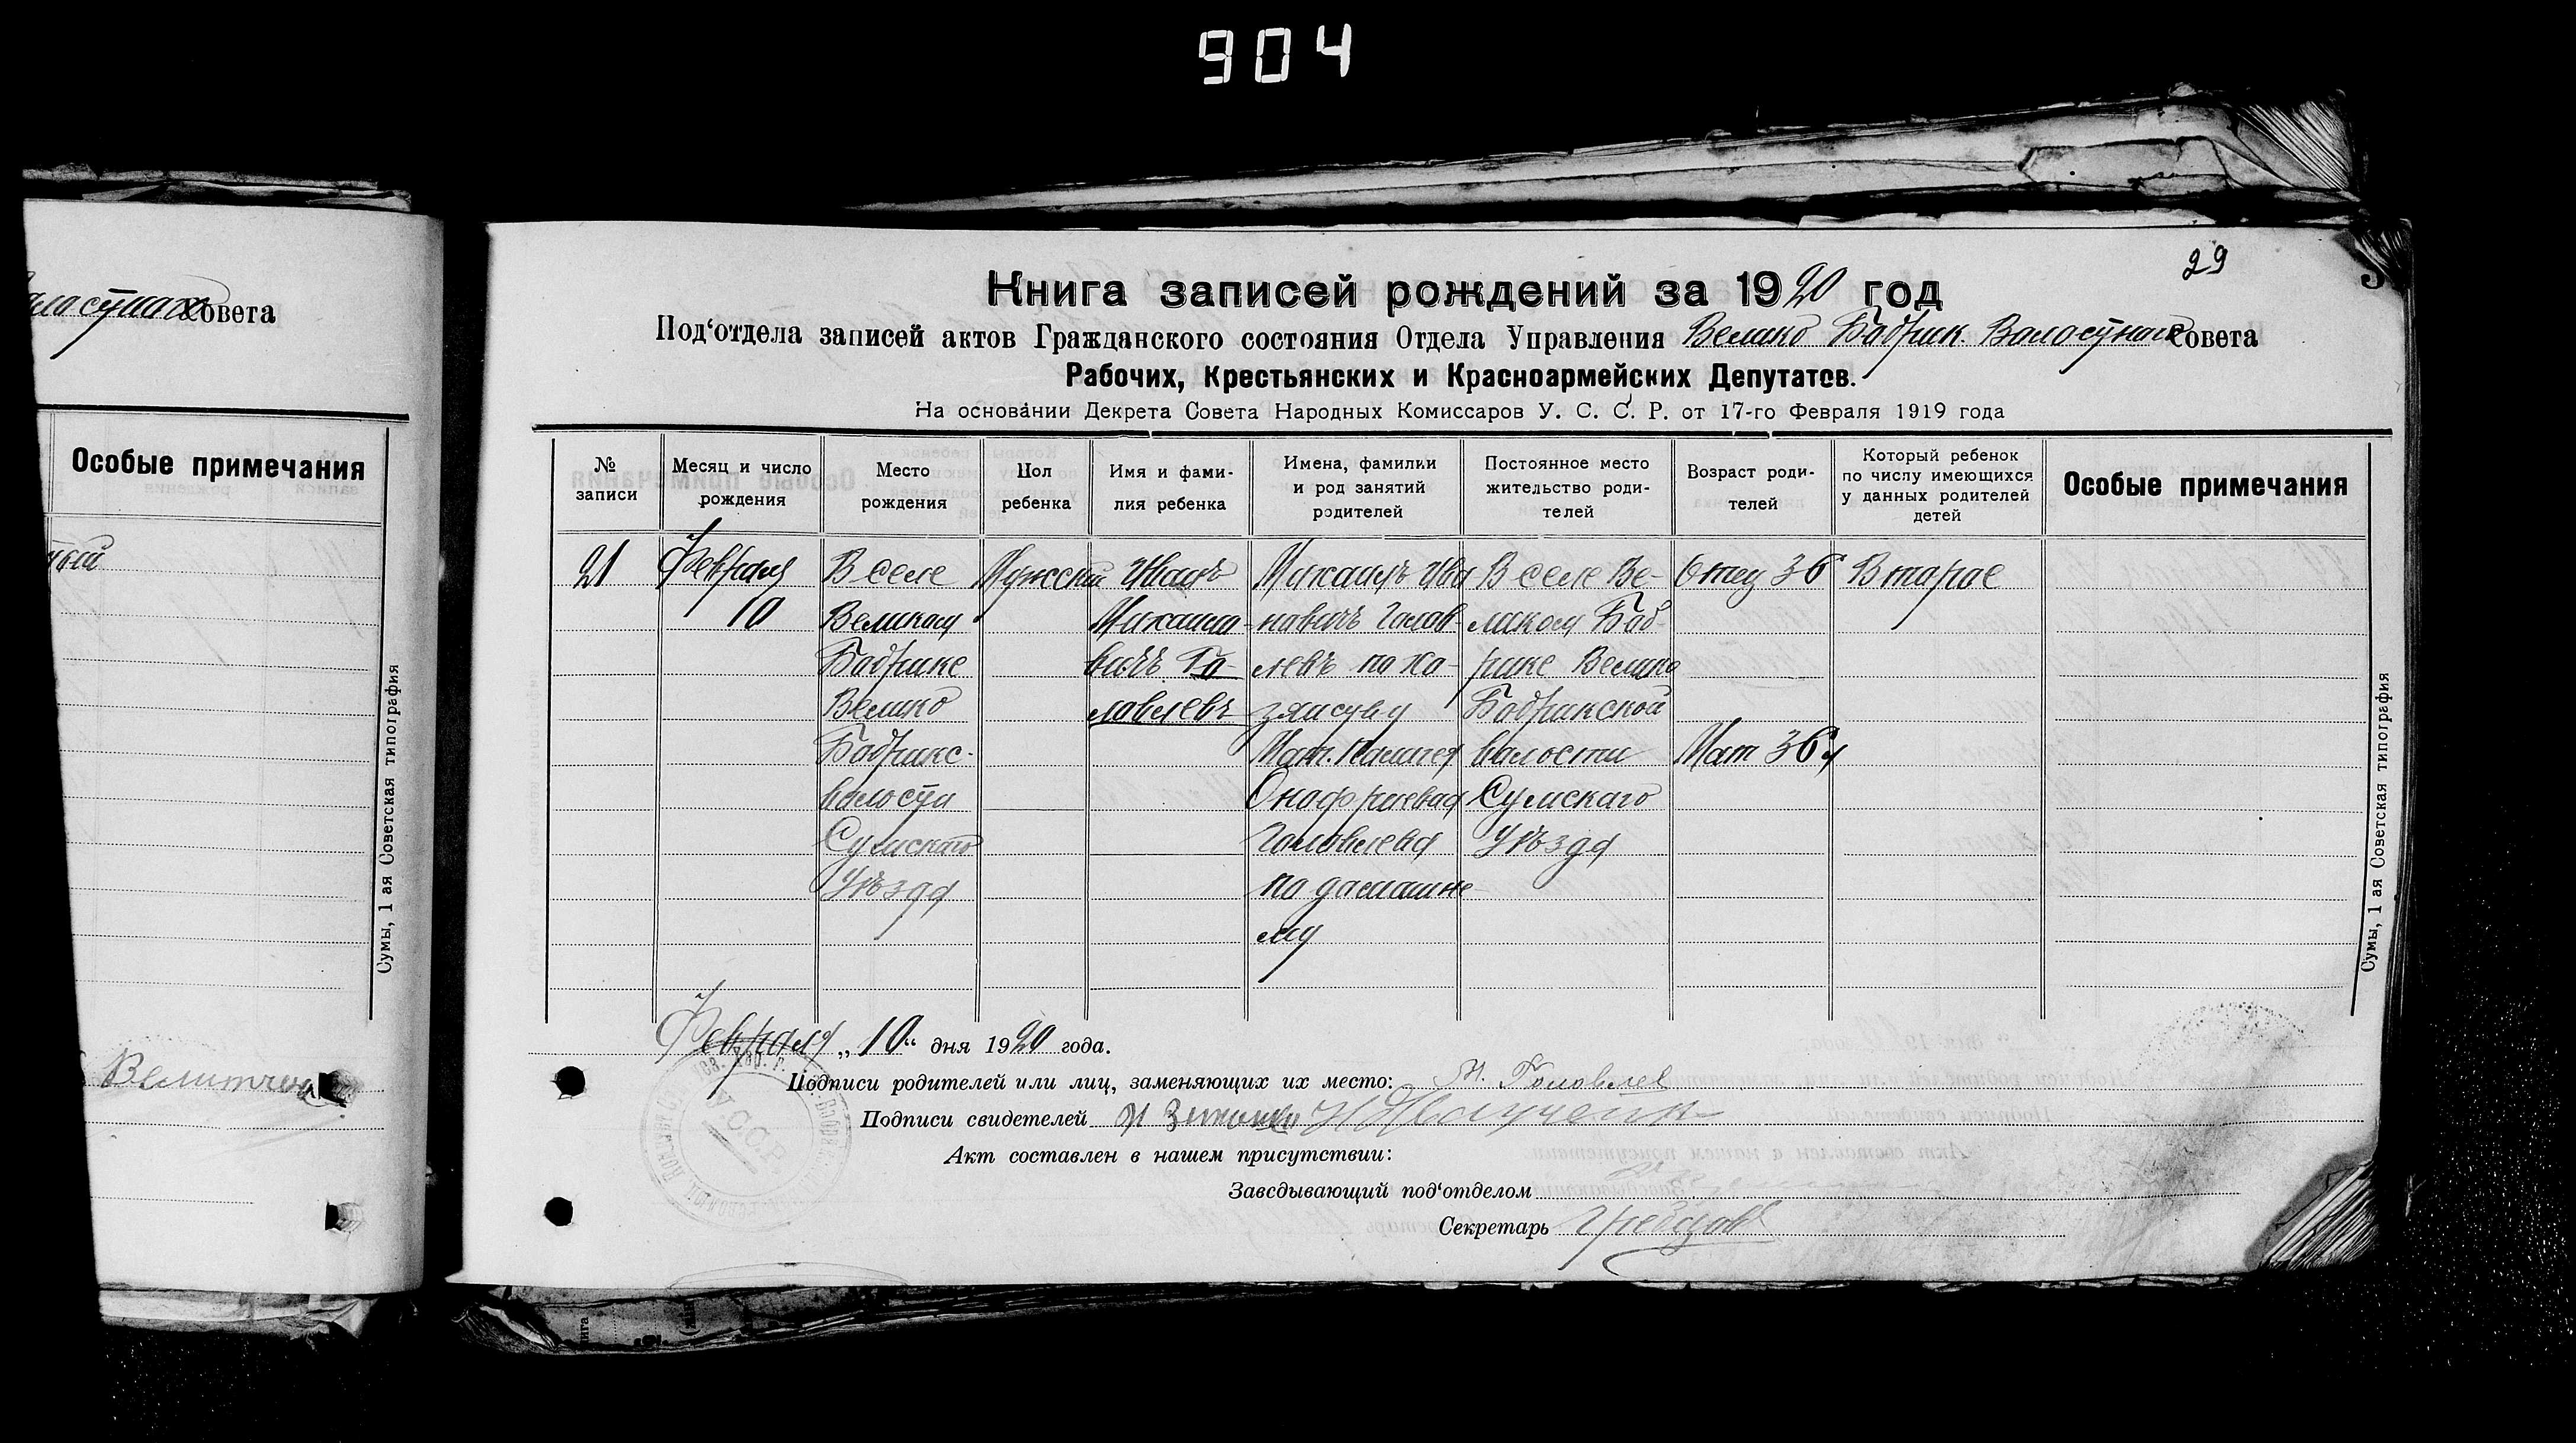 904
29
Книга записей рождений за 1920 год
Под‘отдела записей актов Гражданского состояния Отдела Управления Велико Бобрик. Волостного Совета
Рабочих, Крестьянских и Красноармейских Депутатов.
На основании Декрета Совета Народных Комиссаров У. С. С. Р. от 17-го Февраля 1919 года
совета
Особые примечания
Сумы, 1 ая Советская типография
№ записи
Месяц и число рождения
Место рождения
Пол ребенка
Имя и фами-
лия ребенка
Имена, фамилии
и род занятий
родителей
Постоянное место
жительство роди-
телей
Возраст роди-
телей
Который ребенок
по числу имеющихся
у данных родителей
детей
Особые примечания
21
Февраля
10
В селе
Великом
Бобрике
Велико
Бобрикс-
волости
Сумскаго
Уѣзда
Мужской
Иванъ
Михаило-
вичъ Го-
ловлевъ
Михаилъ Ива
новичъ Голов-
левъ по хо-
зяйству
Мат.
Онофриевна
Головлева
по домашне-
му
В селе Ве-
ликом Боб-
рике Велико
Бобрикской
волости
Сумскаго
Уѣзда
Отец 36
Мат 36
Второе
Сумы, 1 ая Советская типография
Февраля „10“ дня 1920 года.
Подписи родителей или лиц, заменяющих их место: М. Головлев
Подписи свидетелей
Акт составлен в нашем присутствии:
Заведывающий под‘отделом
Секретарь
У.С.С.Р.